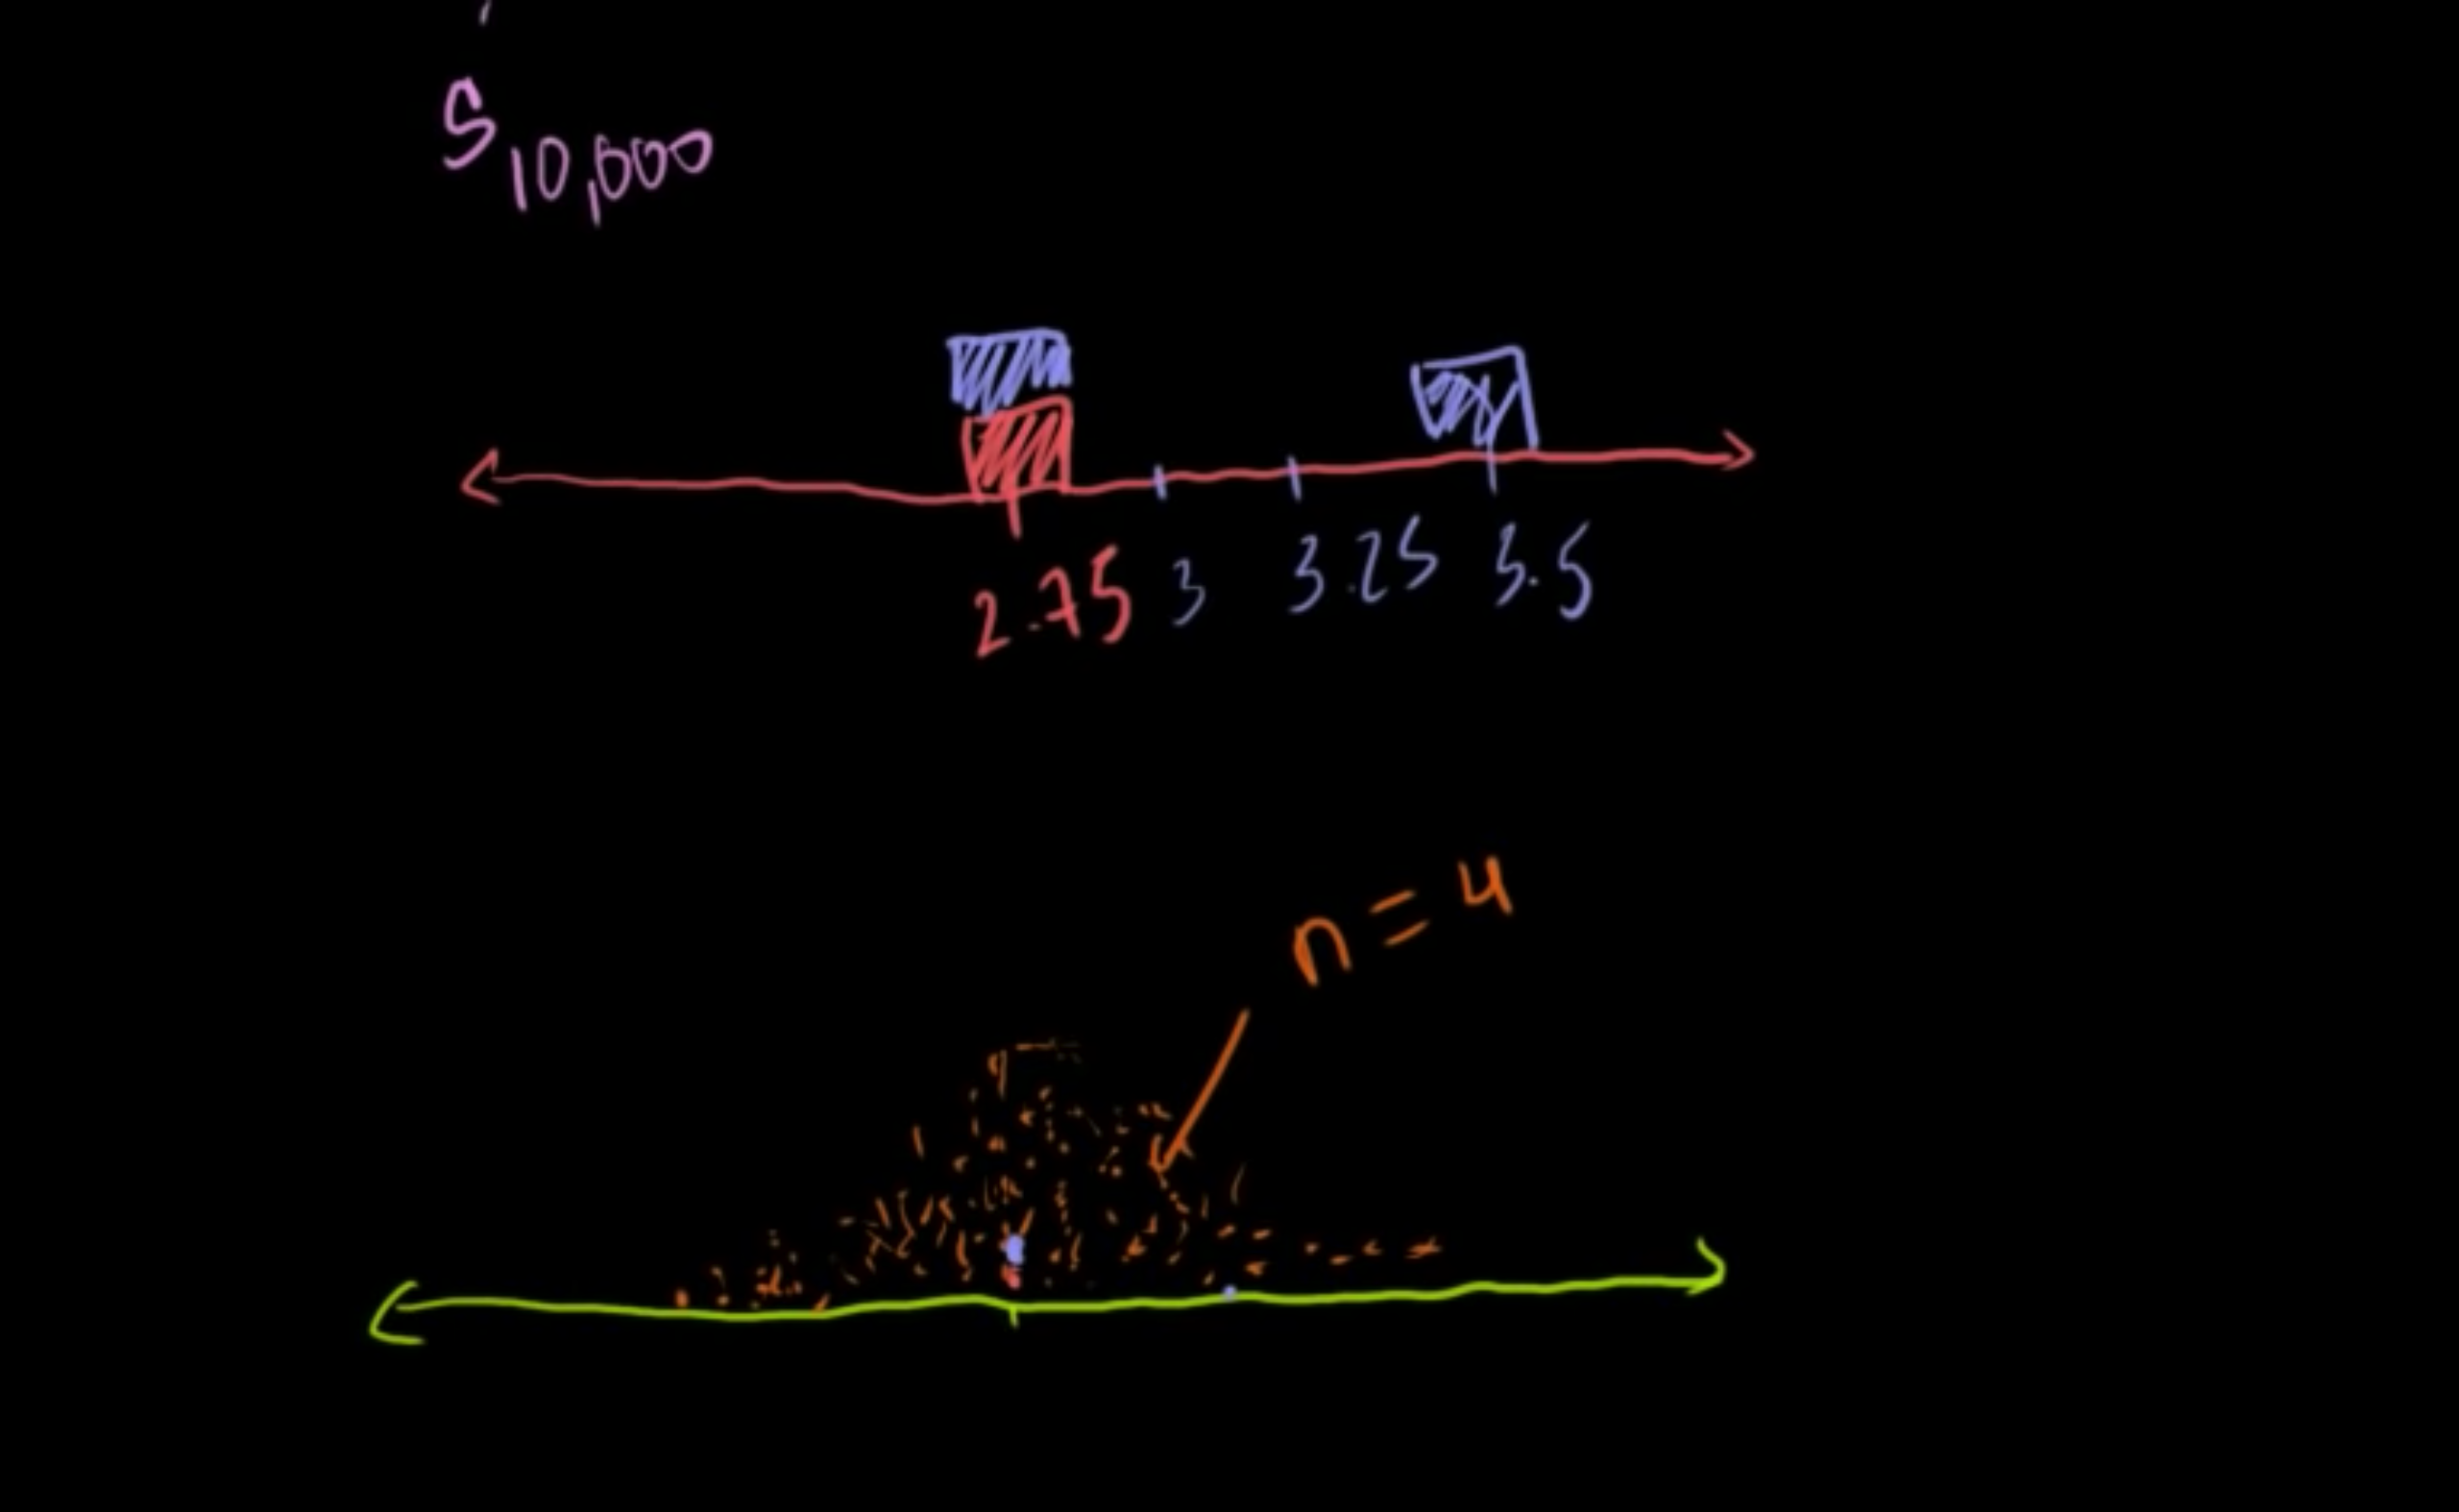 S10,000
2.75 3 3.25 3.5
n = 4